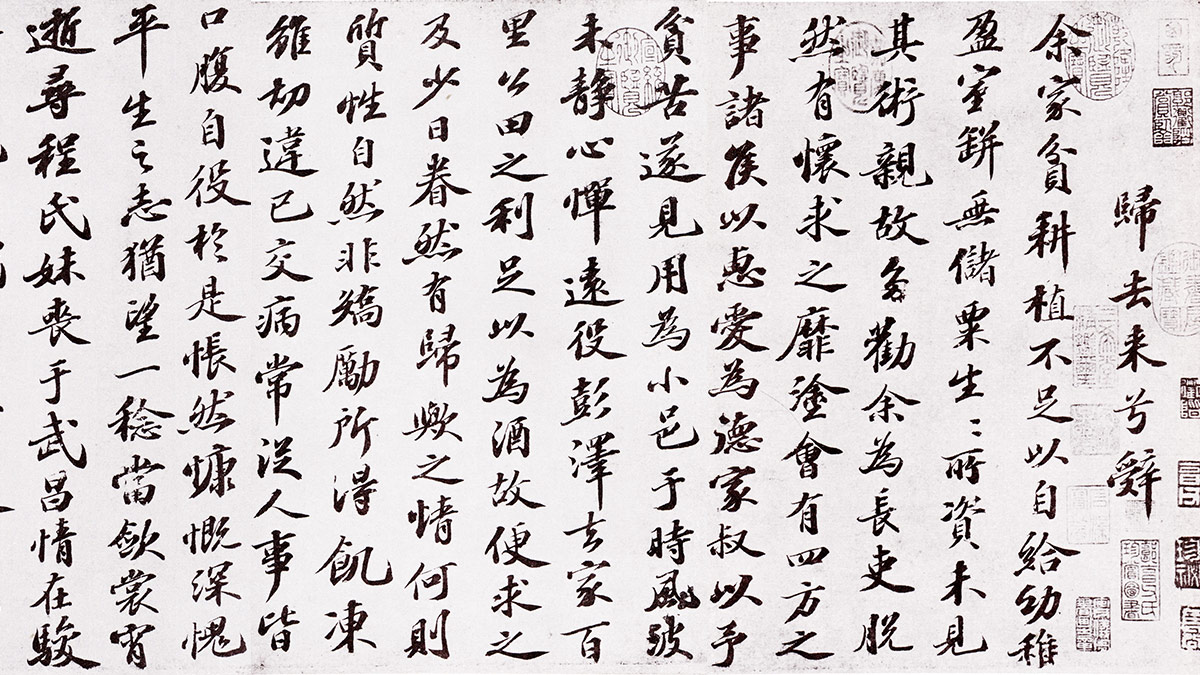 歸去来兮辭
余家貧耕植不足以自給幼稚
盈室缾無儲粟生〻所資未見
其術親故多勸余為長吏脫
然有懷求之靡塗會有四方之
事諸侯以惠愛為德家叔以予
貧苦遂見用為小邑于時風波
未靜心憚遠役彭澤去家百
里公田之利足以為酒故便求之
及少日眷然有歸歟之情何則
質性自然非矯勵所得飢凍
雖切違己交病常從人事皆
口腹自役於是悵然慷慨深愧
平生之志猶望一稔當斂裳宵
逝尋程氏妹喪于武昌情在駿